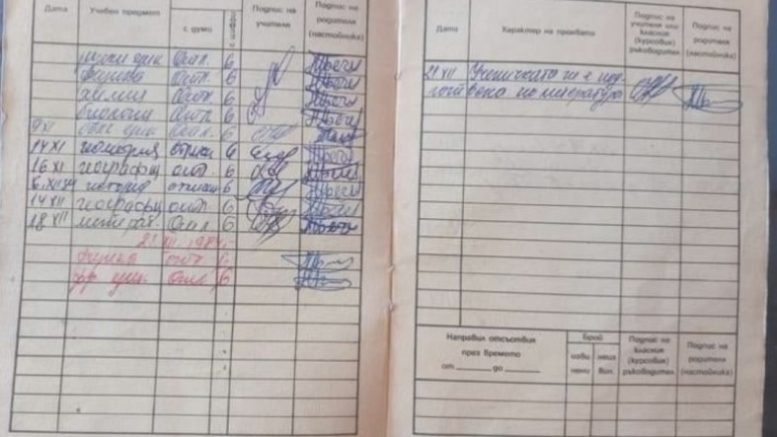 Дата Учебен предмет с думи Подпис на учителя Подпис на родителя (настойника)
Отл. 6
физика Отл. 6
химия Отл. 6
биология Отл. 6
9 XI Отл. 6
14 XI история отличен 6
16 XI география отл. 6
6.XII 84 история отличен 6
14 XII география отл. 6
18 XII Отл. 6
21 XII 1984 г.
физика отл 6
фр. език Отл 6
Дата Характер на проявата Подпис на учителя или класния (курсовия) ръководител Подпис на родителя (настойника)
21 XII Ученичката не е под-
готвена по литература
Направил отсъствия
през времето
от до
Брой
изви нени
неиз вин.
Подпис на класния (курсовия) ръководител
Подпис на родителя (настойника)